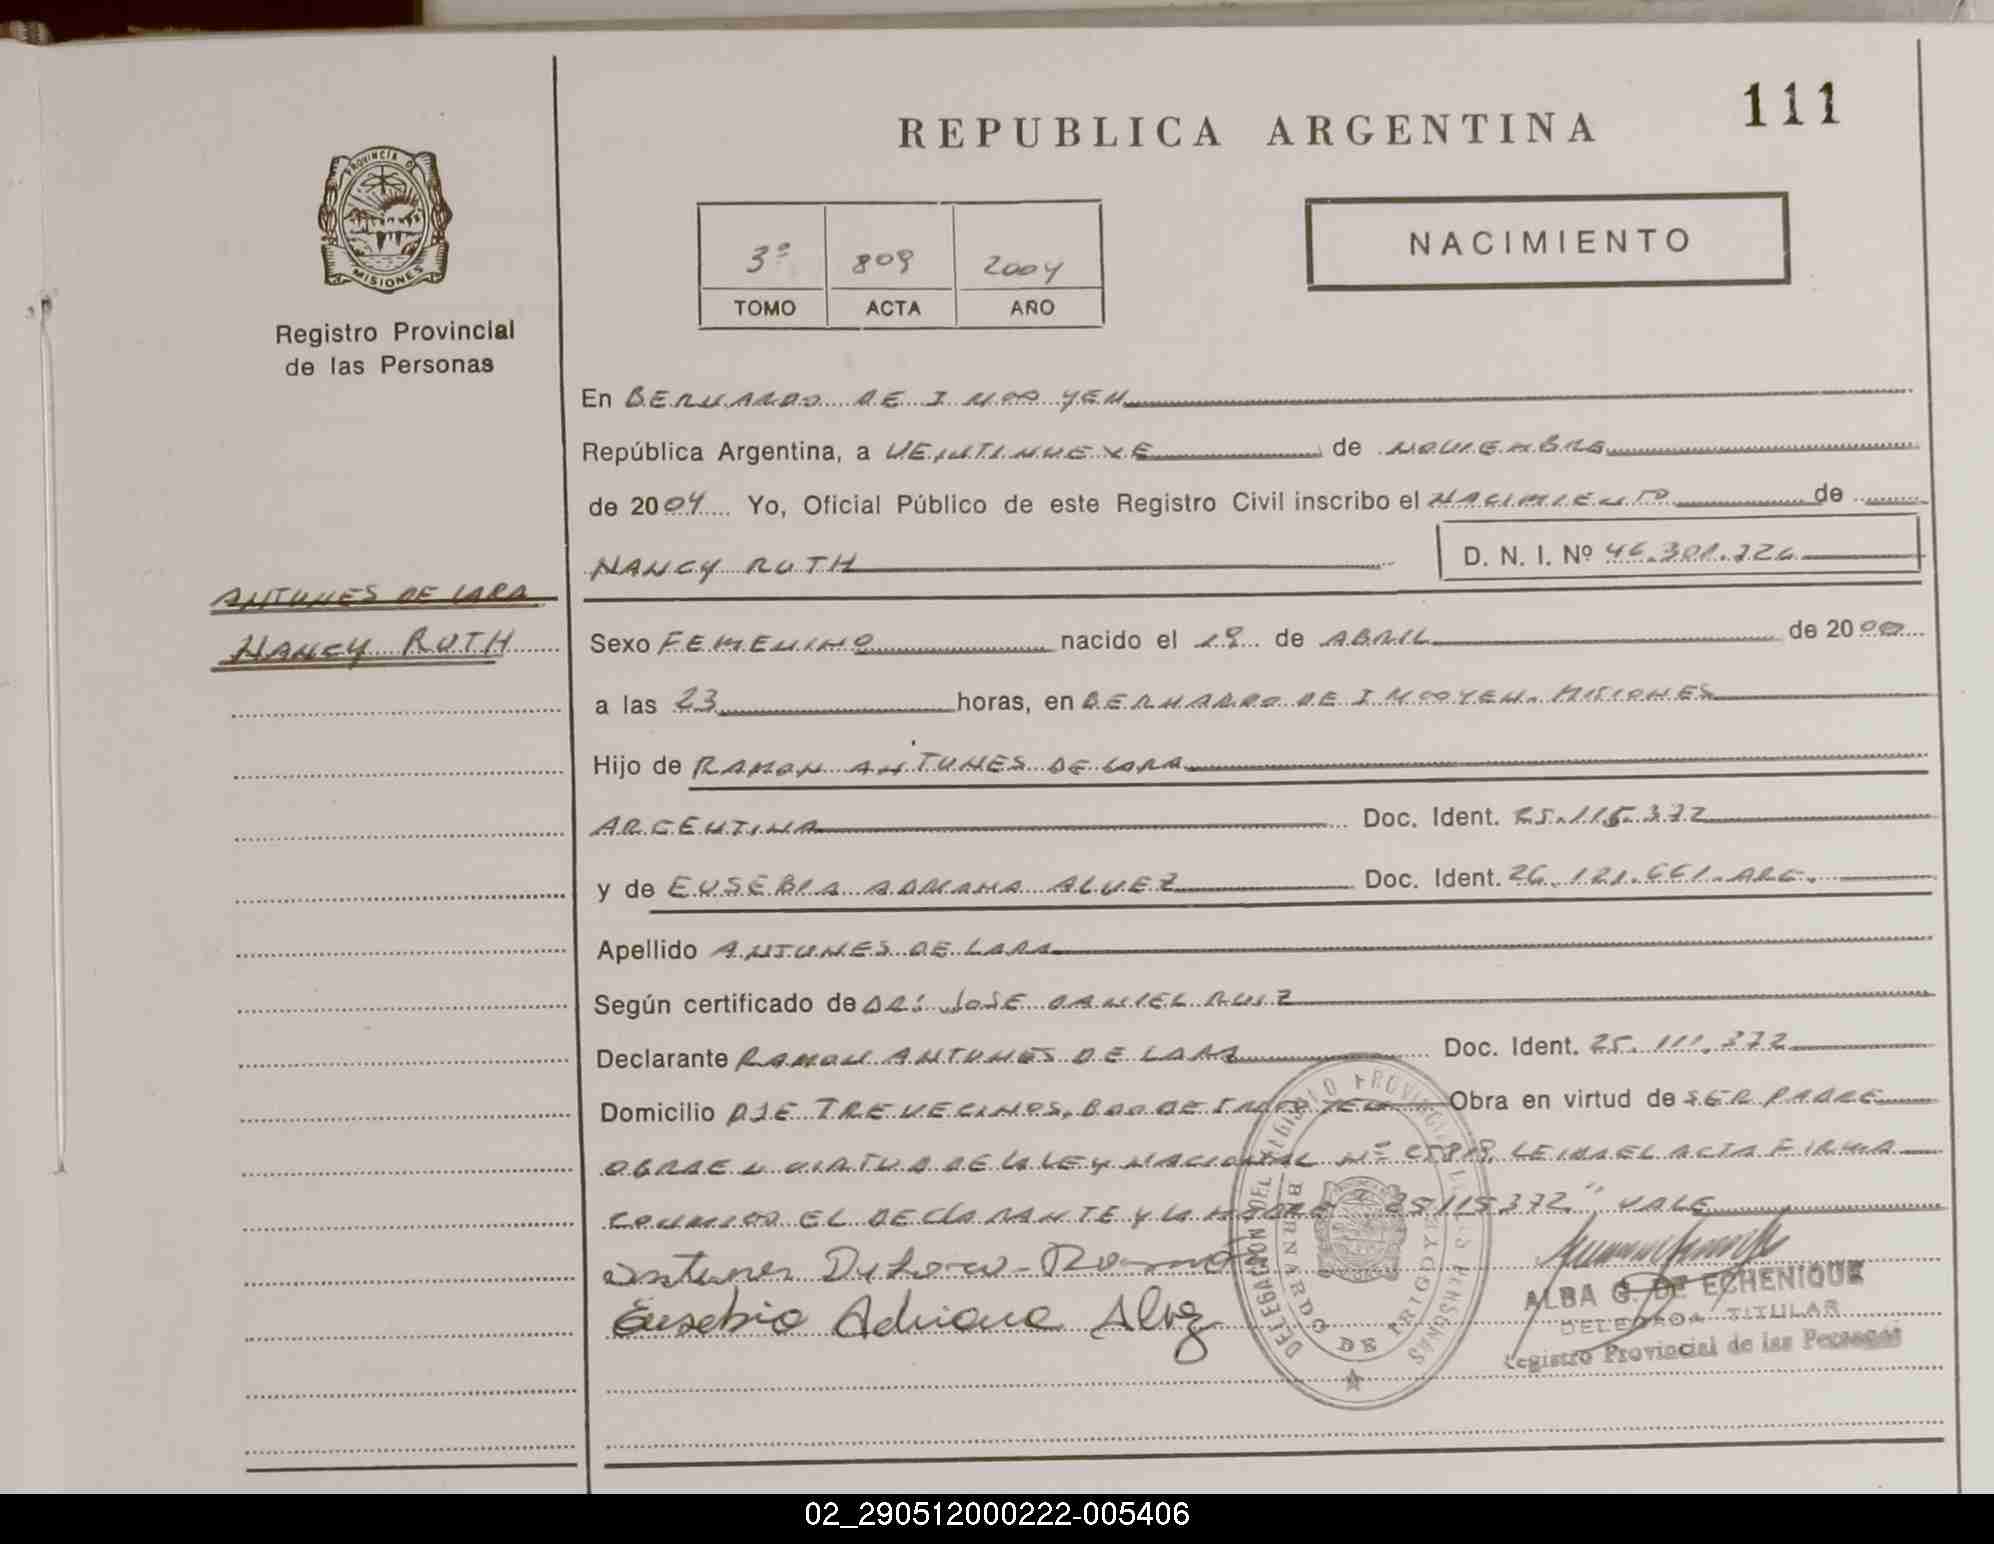 111
REPUBLICA ARGENTINA
PROVINCIA DE
MISIONES
NACIMIENTO
3º 809 2004
TOMO ACTA AÑO
Registro Provincial
de las Personas
En BERNARDO DE IRIGOYEN
República Argentina, a VEINTINUEVE de NOVIEMBRE
de 2004 Yo, Oficial Público de este Registro Civil inscribo el NACIMIENTO de
NANCY RUTH D. N. I. Nº 46.301.226
ANTUNES DE LARA
NANCY RUTH
Sexo FEMENINO nacido el 19 de ABRIL de 2000
a las 23 horas, en BERNARDO DE IRIGOYEN. MISIONES
Hijo de RAMON ANTUNES DE LARA
ARGENTINA Doc. Ident. 25.115.372
y de EUSEBIA ADRIANA ALVEZ Doc. Ident. 26.121.661. ARG.
Apellido ANTUNES DE LARA
Según certificado de DR: JOSE DANIEL RUIZ
Declarante RAMON ANTUNES DE LARA Doc. Ident. 25.111.372
Domicilio PJE TRE VECINOS, BDO DE IRIGOYEN Obra en virtud de SER PADRE
OBRA EN VIRTUD DE LA LEY NACIONAL Nº 25819. LEIDA EL ACTA FIRMA
CONMIGO EL DECLARANTE Y LA MADRE "25115372" VALE
Antunes De Lara Ramón
Eusebia Adriana Alvez
DELEGACION DEL REGISTRO PROVINCIAL DE LAS PERSONAS
BERNARDO DE IRIGOYEN
ALBA G. DE ECHENIQUE
DELEGADA TITULAR
Registro Provincial de las Personas
02_290512000222-005406